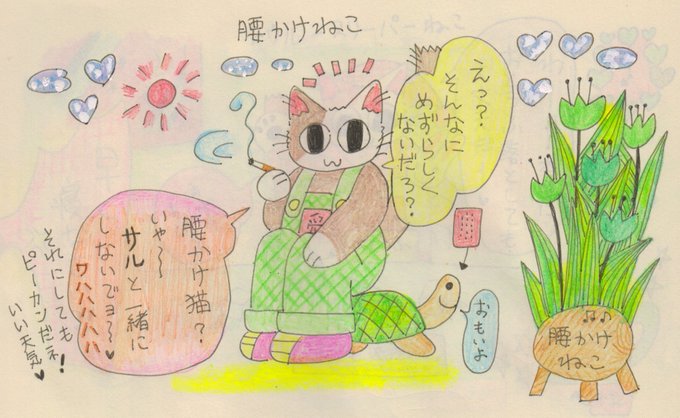 腰かけねこ
えっ？
そんなに
めずらしく
ないだろ？
愛
おもいよ
腰かけ猫？
いや〜〜
サルと一緒に
しないでヨ〜♥
ワハハハハハ
それにしても
ピーカンだネ！
いい天気♥
腰かけ
ねこ